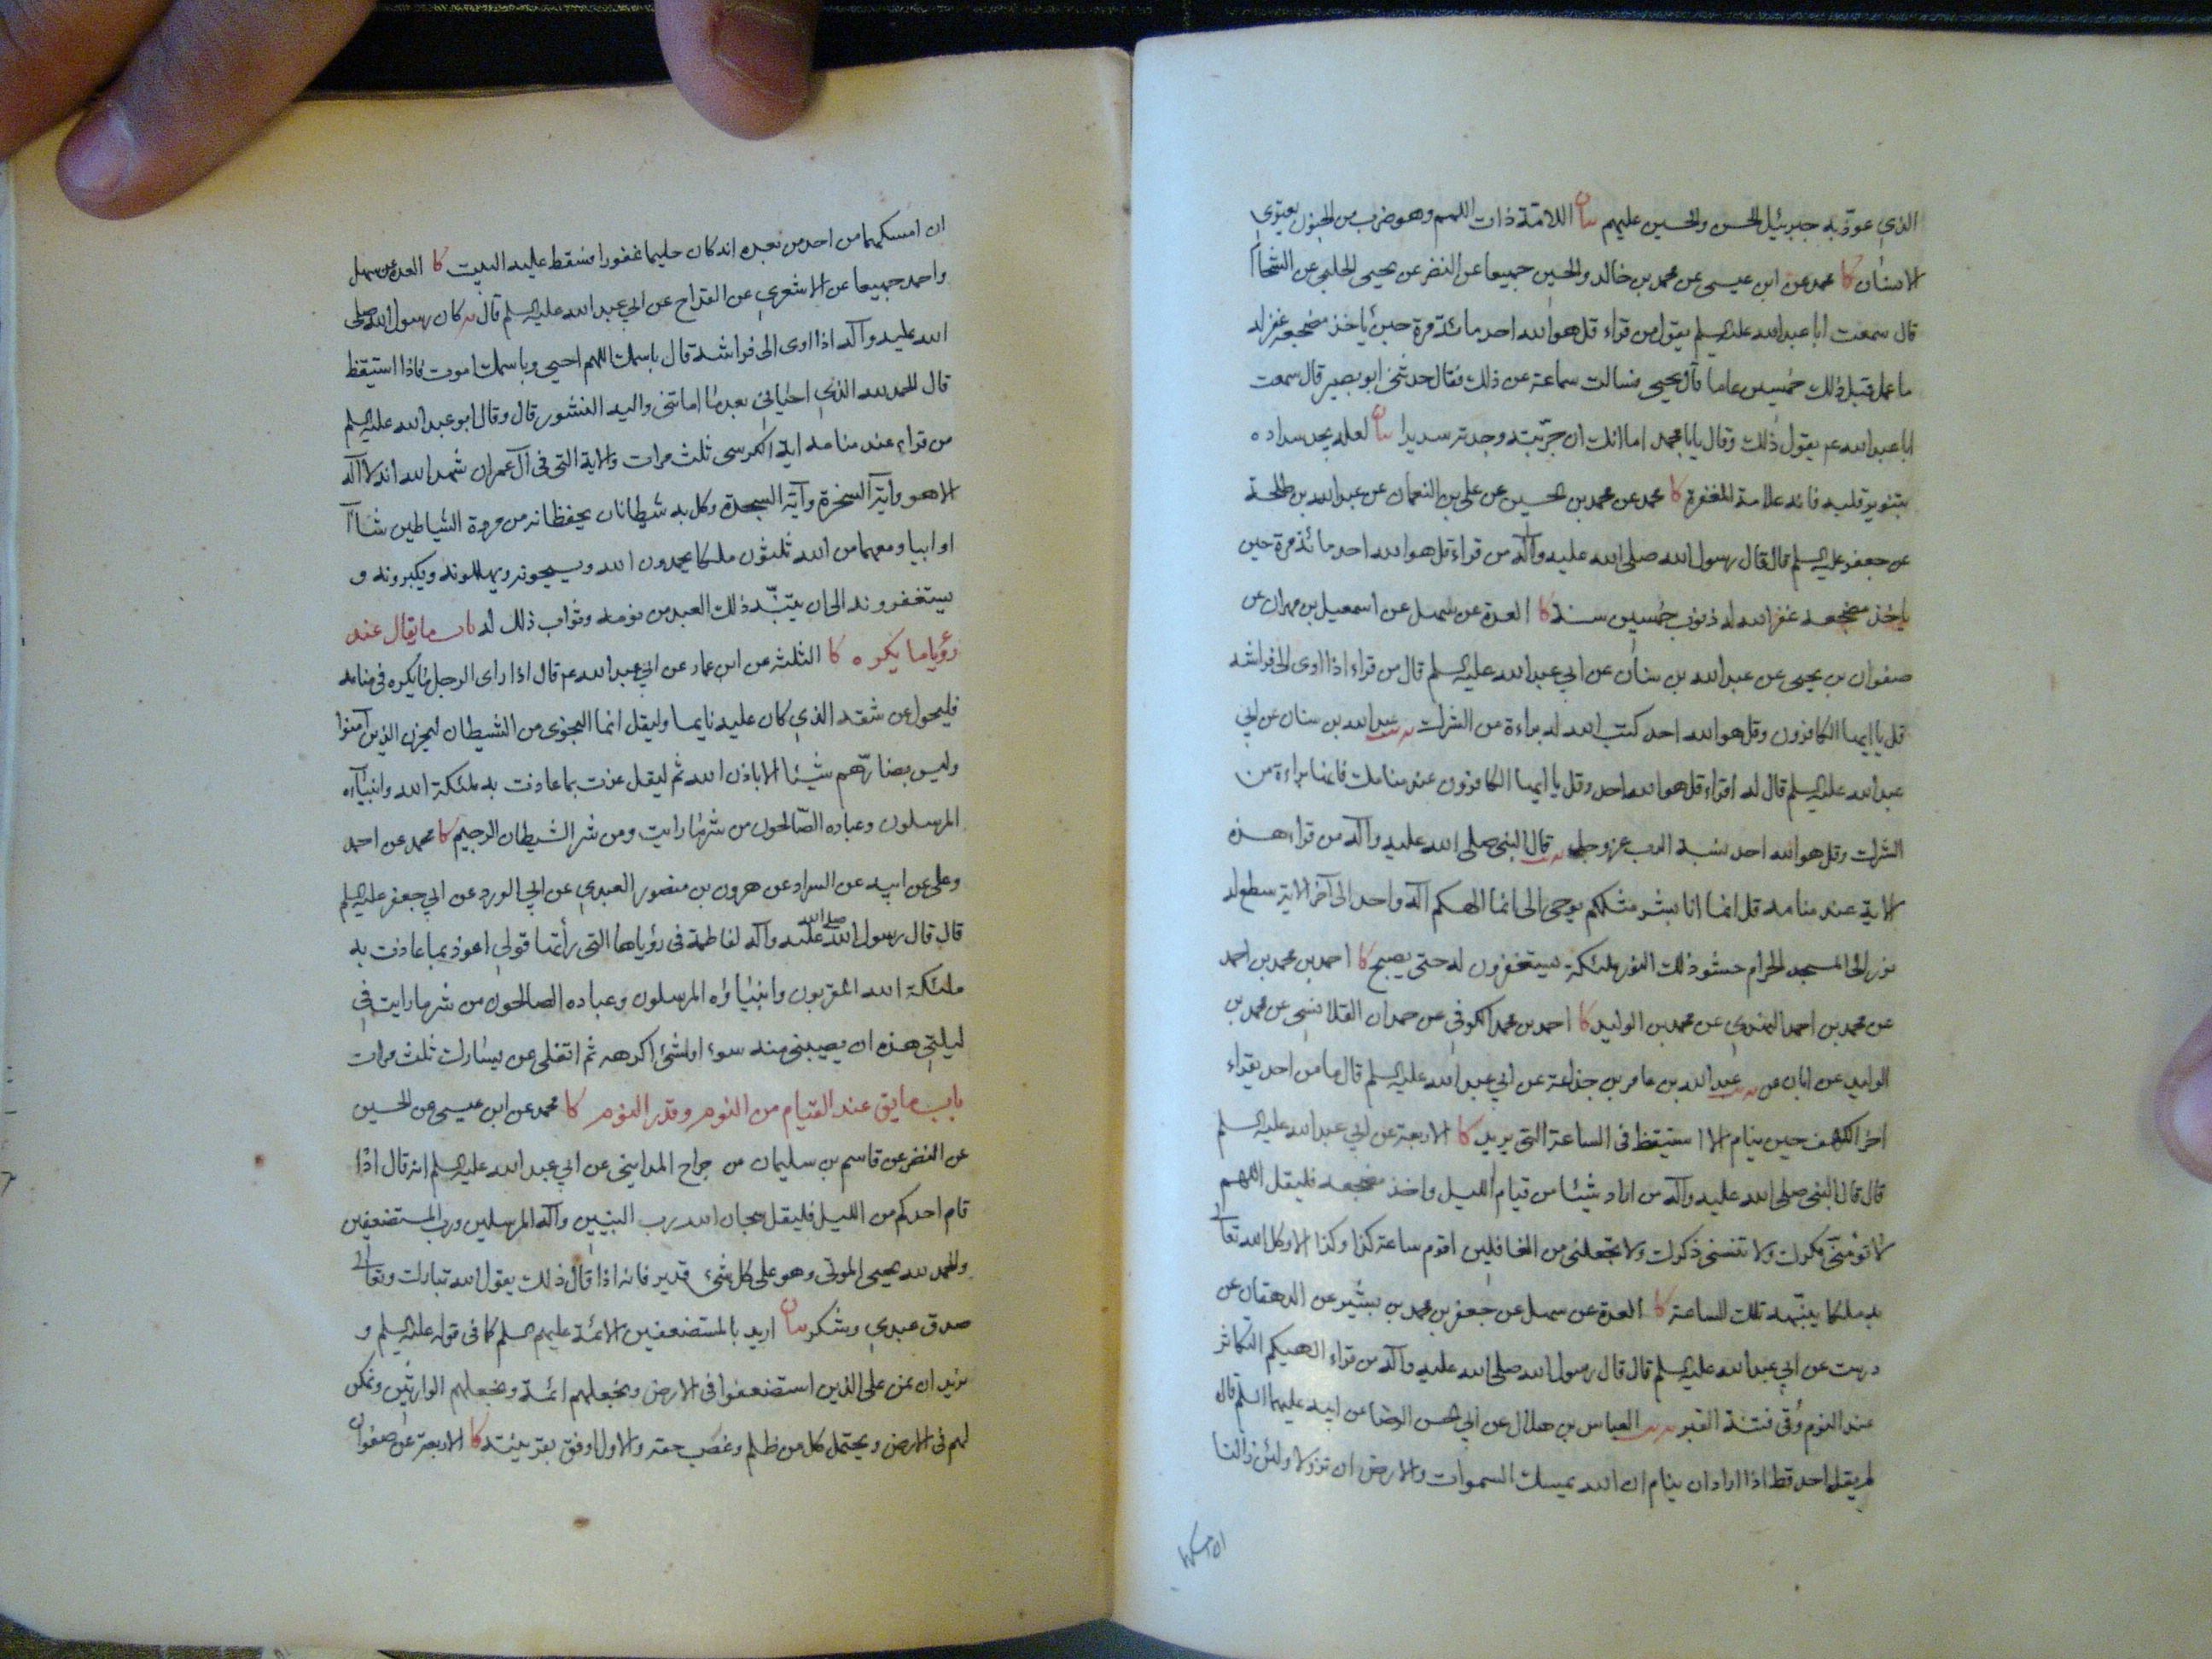 الذي عوّذ به جبرئيل الحسن والحسين عليهم بيان اللامّة ذات اللمم وهو ضرب من الجنون يعتري
الانسان كا محمد عن ابن عيسى عن محمد بن خالد والحسين جميعا عن النضر عن يحيى الحلبي عن الشحّام
قال سمعت ابا عبد الله عليه السلم يقول من قراء قل هو الله احد مائة مرة حين ياخذ مضجعه غفر له
ما عمل قبل ذلك خمسين عاما قال يحيى فسالت سماعة عن ذلك فقال حدثني ابو بصير قال سمعت
ابا عبد الله عم يقول ذلك وقال يابا محمد اما انك ان جرّبته وجدته سديدا بيان لعله يجد سداده
بتنوير قلبه فانه علامة المغفرة كا محمد عن محمد بن الحسين عن علي بن النعمان عن عبد الله بن طلحة
عن جعفر عليه السلم قال قال رسول الله صلى الله عليه وآله من قراء قل هو الله احد مائة مرة حين
ياخذ مضجعه غفر الله له ذنوب خمسين سنة كا العدة عن سهل عن اسمعيل بن مهران عن
صفوان بن يحيى عن عبد الله بن سنان عن ابي عبد الله عليه السلم قال من قراء اذا اوى الى فراشه
قل يا ايها الكافرون وقل هو الله احد كتب الله له براءة من الشرك يه عبد الله بن سنان عن ابي
عبد الله عليه السلم قال له اقراء قل هو الله احد وقل يا ايها الكافرون عند منامك فانها براءة من
الشرك وقل هو الله احد نسبة الرب عز وجل يه قال النبي صلى الله عليه وآله من قراء هذه
الاية عند منامه قل انما انا بشر مثلكم يوحى الى انما الهكم اله واحد الى آخر الاية سطع له
نور الى المسجد الحرام حشو ذلك النور ملئكة يستغفرون له حتى يصبح كا احمد بن محمد بن احمد
عن محمد بن احمد النهدي عن محمد بن الوليد كا احمد بن محمد الكوفي عن حمدان القلانسي عن محمد بن
الوليد عن ابان عن يه عبد الله بن عامر بن جذاعة عن ابي عبد الله عليه السلم قال ما من احد يقراء
آخر الكهف حين ينام الا استيقظ في الساعة التي يريد كا الاربعة عن ابي عبد الله عليه السلم
قال قال النبي صلى الله عليه وآله من اراد شيئا من قيام الليل واخذ مضجعه فليقل اللهم
لا تؤمنّي مكرك ولا تنسني ذكرك ولا تجعلني من الغافلين اقوم ساعة كذا وكذا الا وكل الله تعالى
به ملكا ينبّهه تلك الساعة كا العدة عن سهل عن جعفر بن محمد بن بشير عن الدهقان عن
درست عن ابي عبد الله عليه السلم قال قال رسول الله صلى الله عليه وآله من قراء الهيكم التكاثر
عند النوم وُقي فتنة القبر يه العباس بن هلال عن ابي الحسن الرضا عن ابيه عليهما السلم قال
لم يقل احد قط اذا اراد ان ينام ان الله يمسك السموات والارض ان تزولا ولئن زالتا
ان امسكهما من احد من بعده انه كان حليما غفورا فسقط عليه البيت كا العدة عن سهل
واحمد جميعا عن الاشعري عن القداح عن ابي عبد الله عليه السلم قال كان رسول الله صلى
الله عليه وآله اذا اوى الى فراشه قال باسمك اللهم احيى وباسمك اموت فاذا استيقظ
قال الحمد لله الذي احياني بعد ما اماتني واليه النشور قال وقال ابو عبد الله عليه السلم
من قراء عند منامه اية الكرسي ثلث مرات والاية التي في آل عمران شهد الله انه لا اله
الا هو وآية السخرة وآية السجدة وكل به شيطانان يحفظانه من مردة الشياطين شاآ
او ابيا ومعهما من الله ثلثون ملكا يحمدون الله ويسبحونه ويهللونه ويكبرونه و
يستغفرونه الى ان ينتبّه ذلك العبد من نومه وثواب ذلك له باب ما يقال عند
رؤيا ما يكره كا الثلثة عن ابن عمار عن ابي عبد الله عم قال اذا راى الرجل ما يكره في منامه
فليحول عن شقه الذي كان عليه نايما وليقل انما النجوى من الشيطان ليحزن الذين آمنوا
وليس بضارّهم شيئا الا باذن الله ثم ليقل عذت بما عاذت به ملئكة الله وانبياءه
المرسلون وعباده الصّالحون من شر ما رايت ومن شر الشيطان الرجيم كا محمد عن احمد
وعلي عن ابيه عن السراد عن هرون بن منصور العبدي عن ابي الورد عن ابي جعفر عليه السلم
قال قال رسول الله صلى الله عليه وآله لفاطمة في رؤياها التي رأتها قولي اعوذ بما عاذت به
ملئكة الله المقربون وانبياؤه المرسلون وعباده الصالحون من شر ما رايت في
ليلتي هذه ان يصيبني منه سوء او شئ اكرهه ثم اتفلي عن يسارك ثلث مرات
باب ما يق عند القيام من النوم وقدر النوم كا محمد عن ابن عيسى عن الحسين
عن النضر عن قاسم بن سليمان عن جراح المدايني عن ابي عبد الله عليه السلم انه قال اذا
قام احدكم من الليل فليقل سبحان الله رب النبيين وآله المرسلين ورب المستضعفين
والحمد لله يحيى الموتى وهو على كل شئ قدير فانه اذا قال ذلك يقول الله تبارك وتعالى
صدق عبدي وشكر بيان اريد بالمستضعفين الائمة عليهم السلم كما في قوله عليه السلم و
نريد ان نمن على الذين استضعفوا في الارض ونجعلهم ائمة ونجعلهم الوارثين ونمكن
لهم في الارض ويحتمل كل من ظلم وغصب حقه والاول اوفق بقرينته كا الاربعة عن صفوان